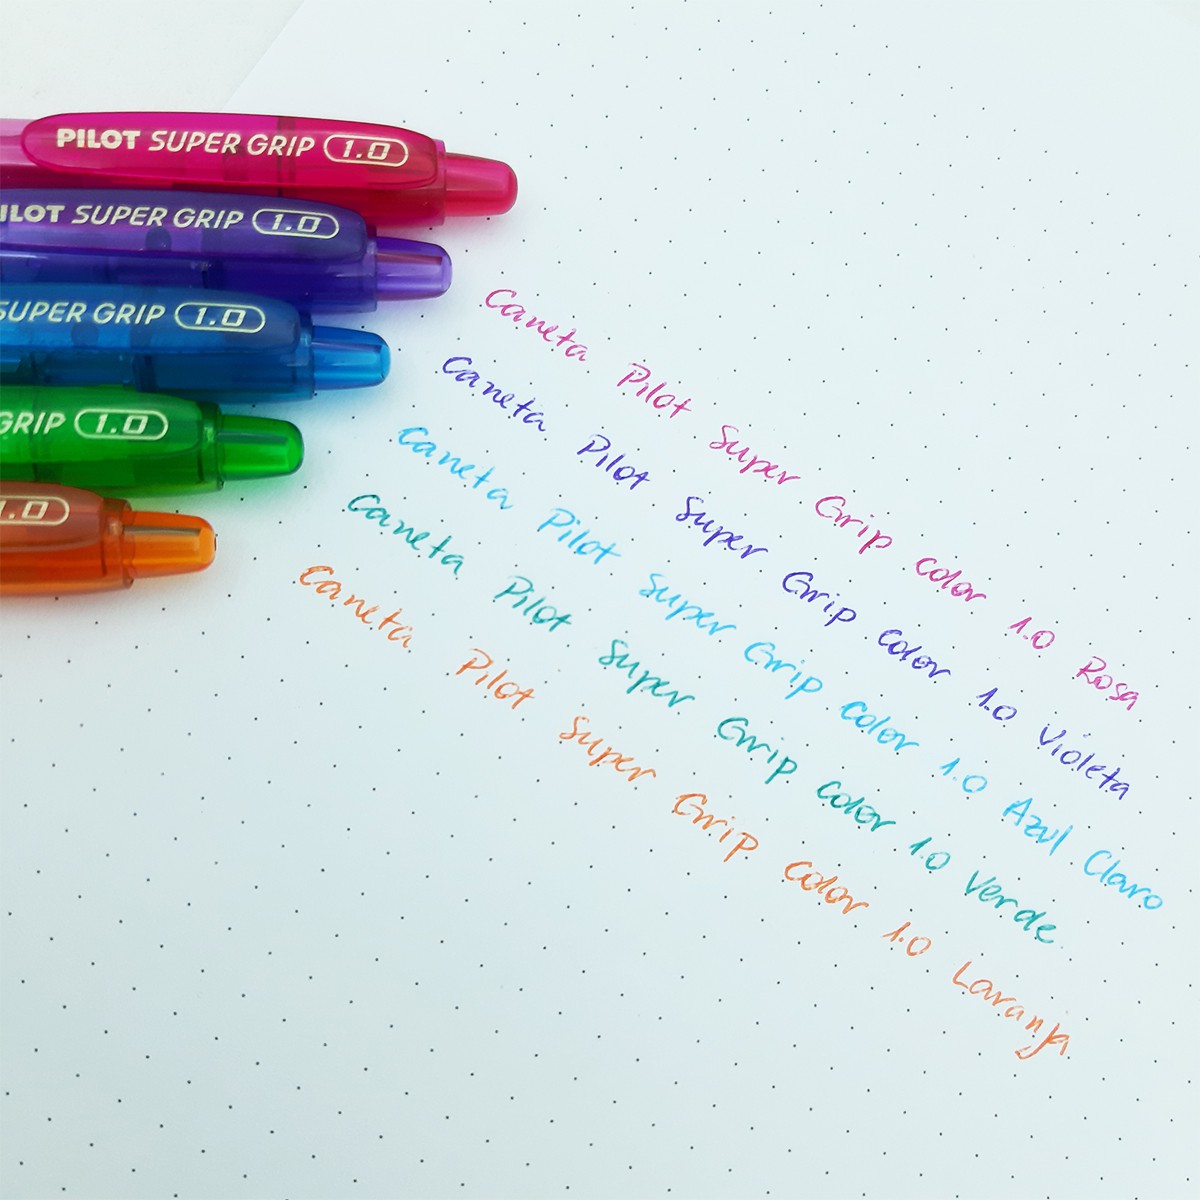 PILOT SUPER GRIP 1.0
ILOT SUPER GRIP 1.0
SUPER GRIP 1.0
GRIP 1.0
1.0
Caneta Pilot Super Grip Color 1.0 Rosa
Caneta Pilot Super Grip Color 1.0 Violeta
Caneta Pilot Super Grip Color 1.0 Azul Claro
Caneta Pilot Super Grip Color 1.0 Verde
Caneta Pilot Super Grip Color 1.0 Laranja